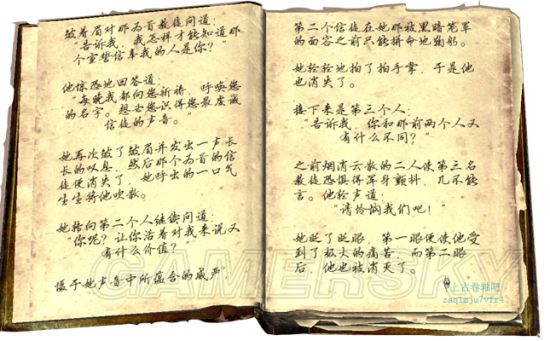 皱着眉对那为首教徒问道:
"告诉我,我怎样才能知道那
个宣誓信奉我的人是你?"
他惊恐地回答道:
"每晚我都向您祈祷,呼唤您
的名字。想必您识得您最虔诚
信徒的声音。"
她再次皱了皱眉并发出一声长
长的叹息,然后那个为首的信
徒便消失了,她呼出的一口气
生生将他吹散。
她转向第二个人继续问道:
"你呢?让你活着对我来说又
有什么价值?"
慑于她声音中所蕴含的威严
第二个信徒在她那被黑暗笼罩
的面容之前只能拼命地鞠躬。
她轻轻地拍了拍手掌,于是他
也消失了。
接下来是第三个人:
"告诉我,你和那前两个人又
有什么不同?"
之前烟消云散的二人使第三名
教徒恐惧得浑身颤抖,几不能
言。他轻声道:
"请怜悯我们吧!"
她眨了眨眼,第一眼便使他受
到了极大的痛苦,而第二眼
后,他也被消灭了。
GAMERSKY
上古卷轴吧
zaq1mju7vfr4